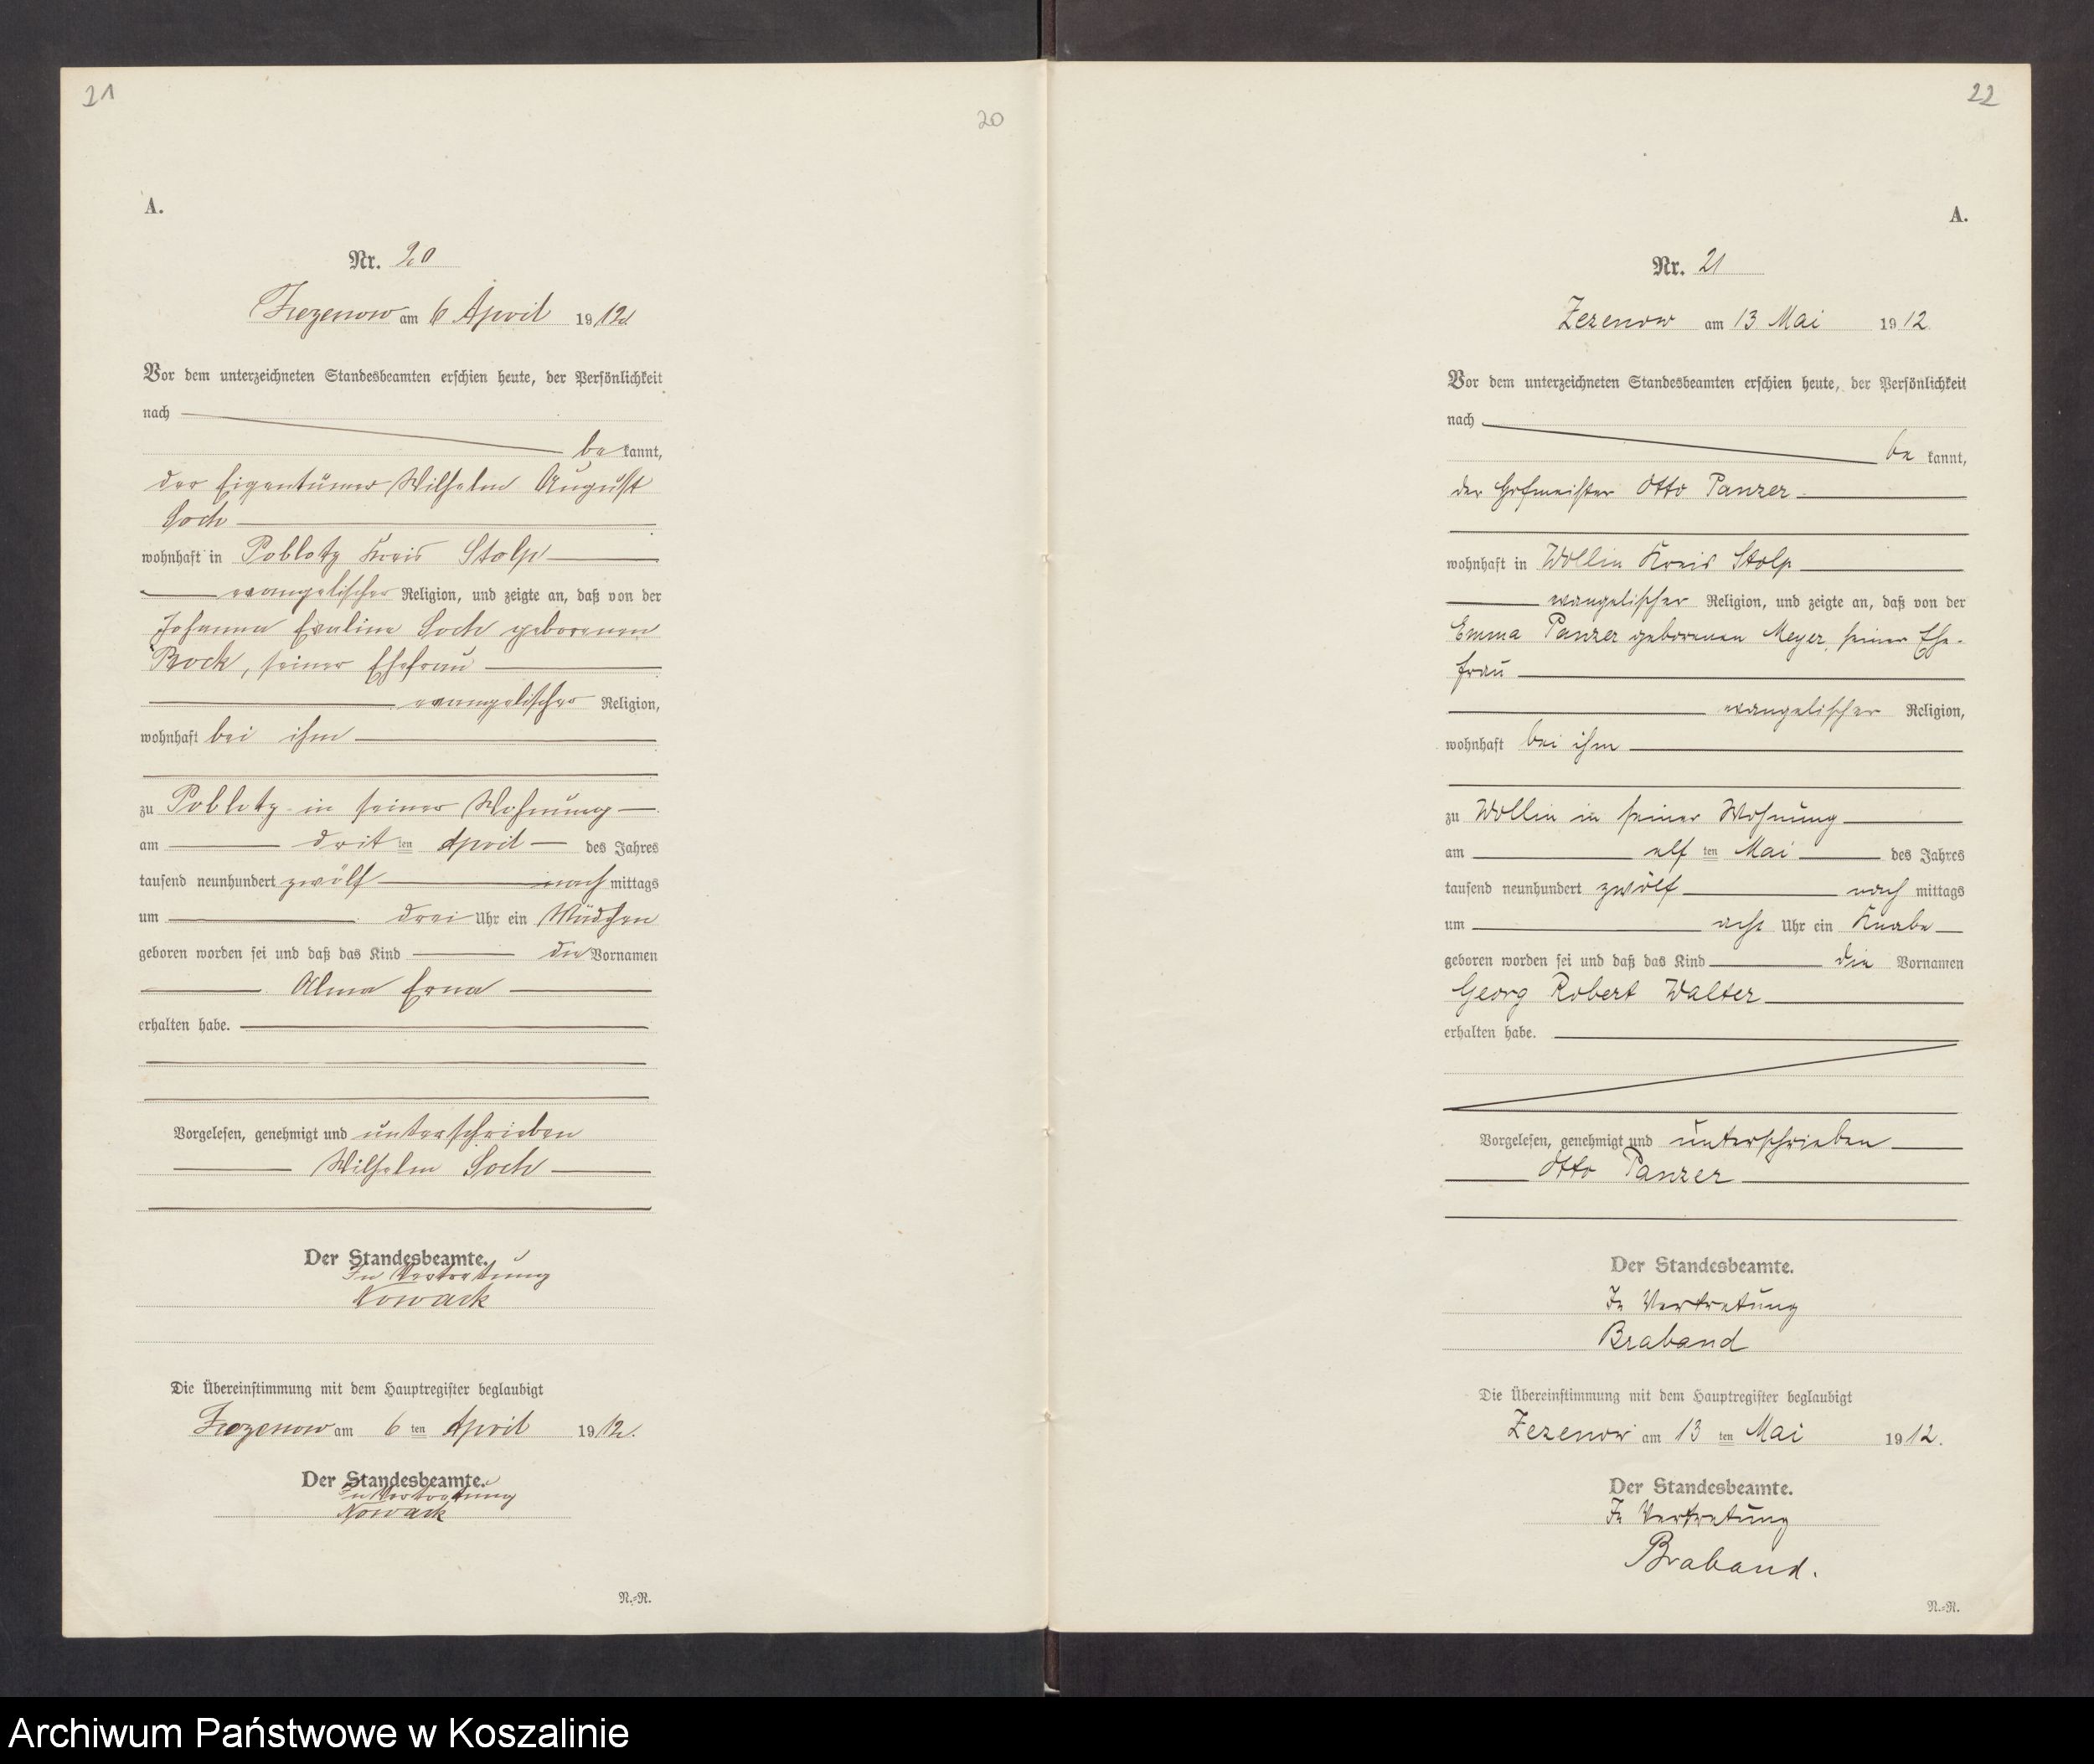 21
20
A.
Nr. 20
Zezenow am 6 April 1912.
Vor dem unterzeichneten Standesbeamten erschien heute, der Persönlichkeit
nach
be kannt,
der Eigentümer Wilhelm August
Soch
wohnhaft in Poblotz Kreis Stolp
evangelischer Religion, und zeigte an, daß von der
Johanna Eveline Soch geborenen
Bock, seiner Ehefrau
evangelischer Religion,
wohnhaft bei ihm
zu Poblotz in seiner Wohnung
am drit ten April des Jahres
tausend neunhundert zwölf nach mittags
um drei Uhr ein Mädchen
geboren worden sei und daß das Kind die Vornamen
Alma Erna
erhalten habe.
Vorgelesen, genehmigt und unterschrieben
Wilhelm Soch
Der Standesbeamte.
In Vertretung
Nowack
Die Übereinstimmung mit dem Hauptregister beglaubigt
Zezenow am 6 ten April 1912.
Der Standesbeamte.
In Vertretung
Nowack
N.=R.
22
A.
Nr. 21
Zezenow am 13 Mai 1912
Vor dem unterzeichneten Standesbeamten erschien heute, der Persönlichkeit
nach
be kannt,
der Hofmeister Otto Panzer
wohnhaft in Wollin Kreis Stolp
evangelischer Religion, und zeigte an, daß von der
Emma Panzer geborenen Meyer, seiner Ehe-
frau
evangelischer Religion,
wohnhaft bei ihm
zu Wollin in seiner Wohnung
am elf ten Mai des Jahres
tausend neunhundert zwölf nach mittags
um acht Uhr ein Knabe
geboren worden sei und daß das Kind die Vornamen
Georg Robert Walter
erhalten habe.
Vorgelesen, genehmigt und unterschrieben
Otto Panzer
Der Standesbeamte.
In Vertretung
Braband
Die Übereinstimmung mit dem Hauptregister beglaubigt
Zezenow am 13 ten Mai 1912.
Der Standesbeamte.
In Vertretung
Braband.
N.=R.
Archiwum Państwowe w Koszalinie